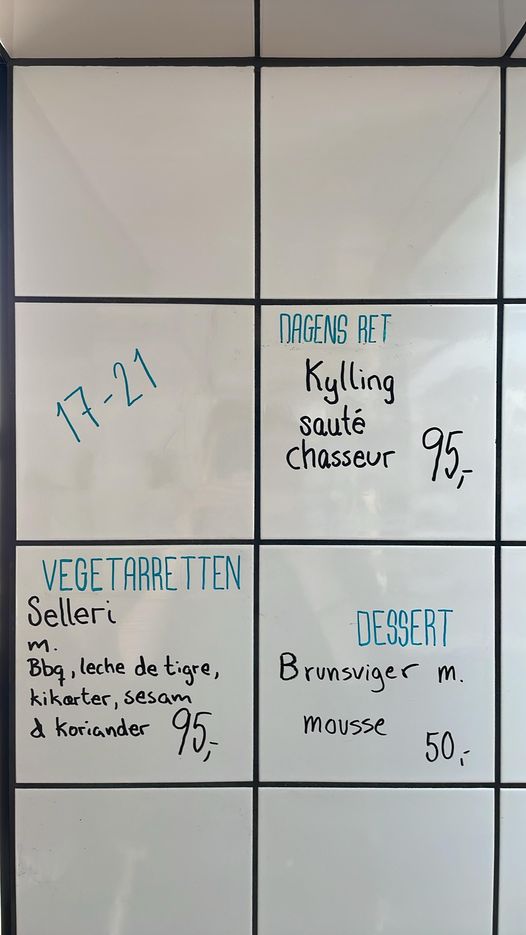 17-21
DAGENS RET
Kylling
sauté
chasseur 95,-
VEGETARRETTEN
Selleri
m.
Bbq, leche de tigre,
kikærter, sesam
& koriander 95,-
DESSERT
Brunsviger m.
mousse
50,-